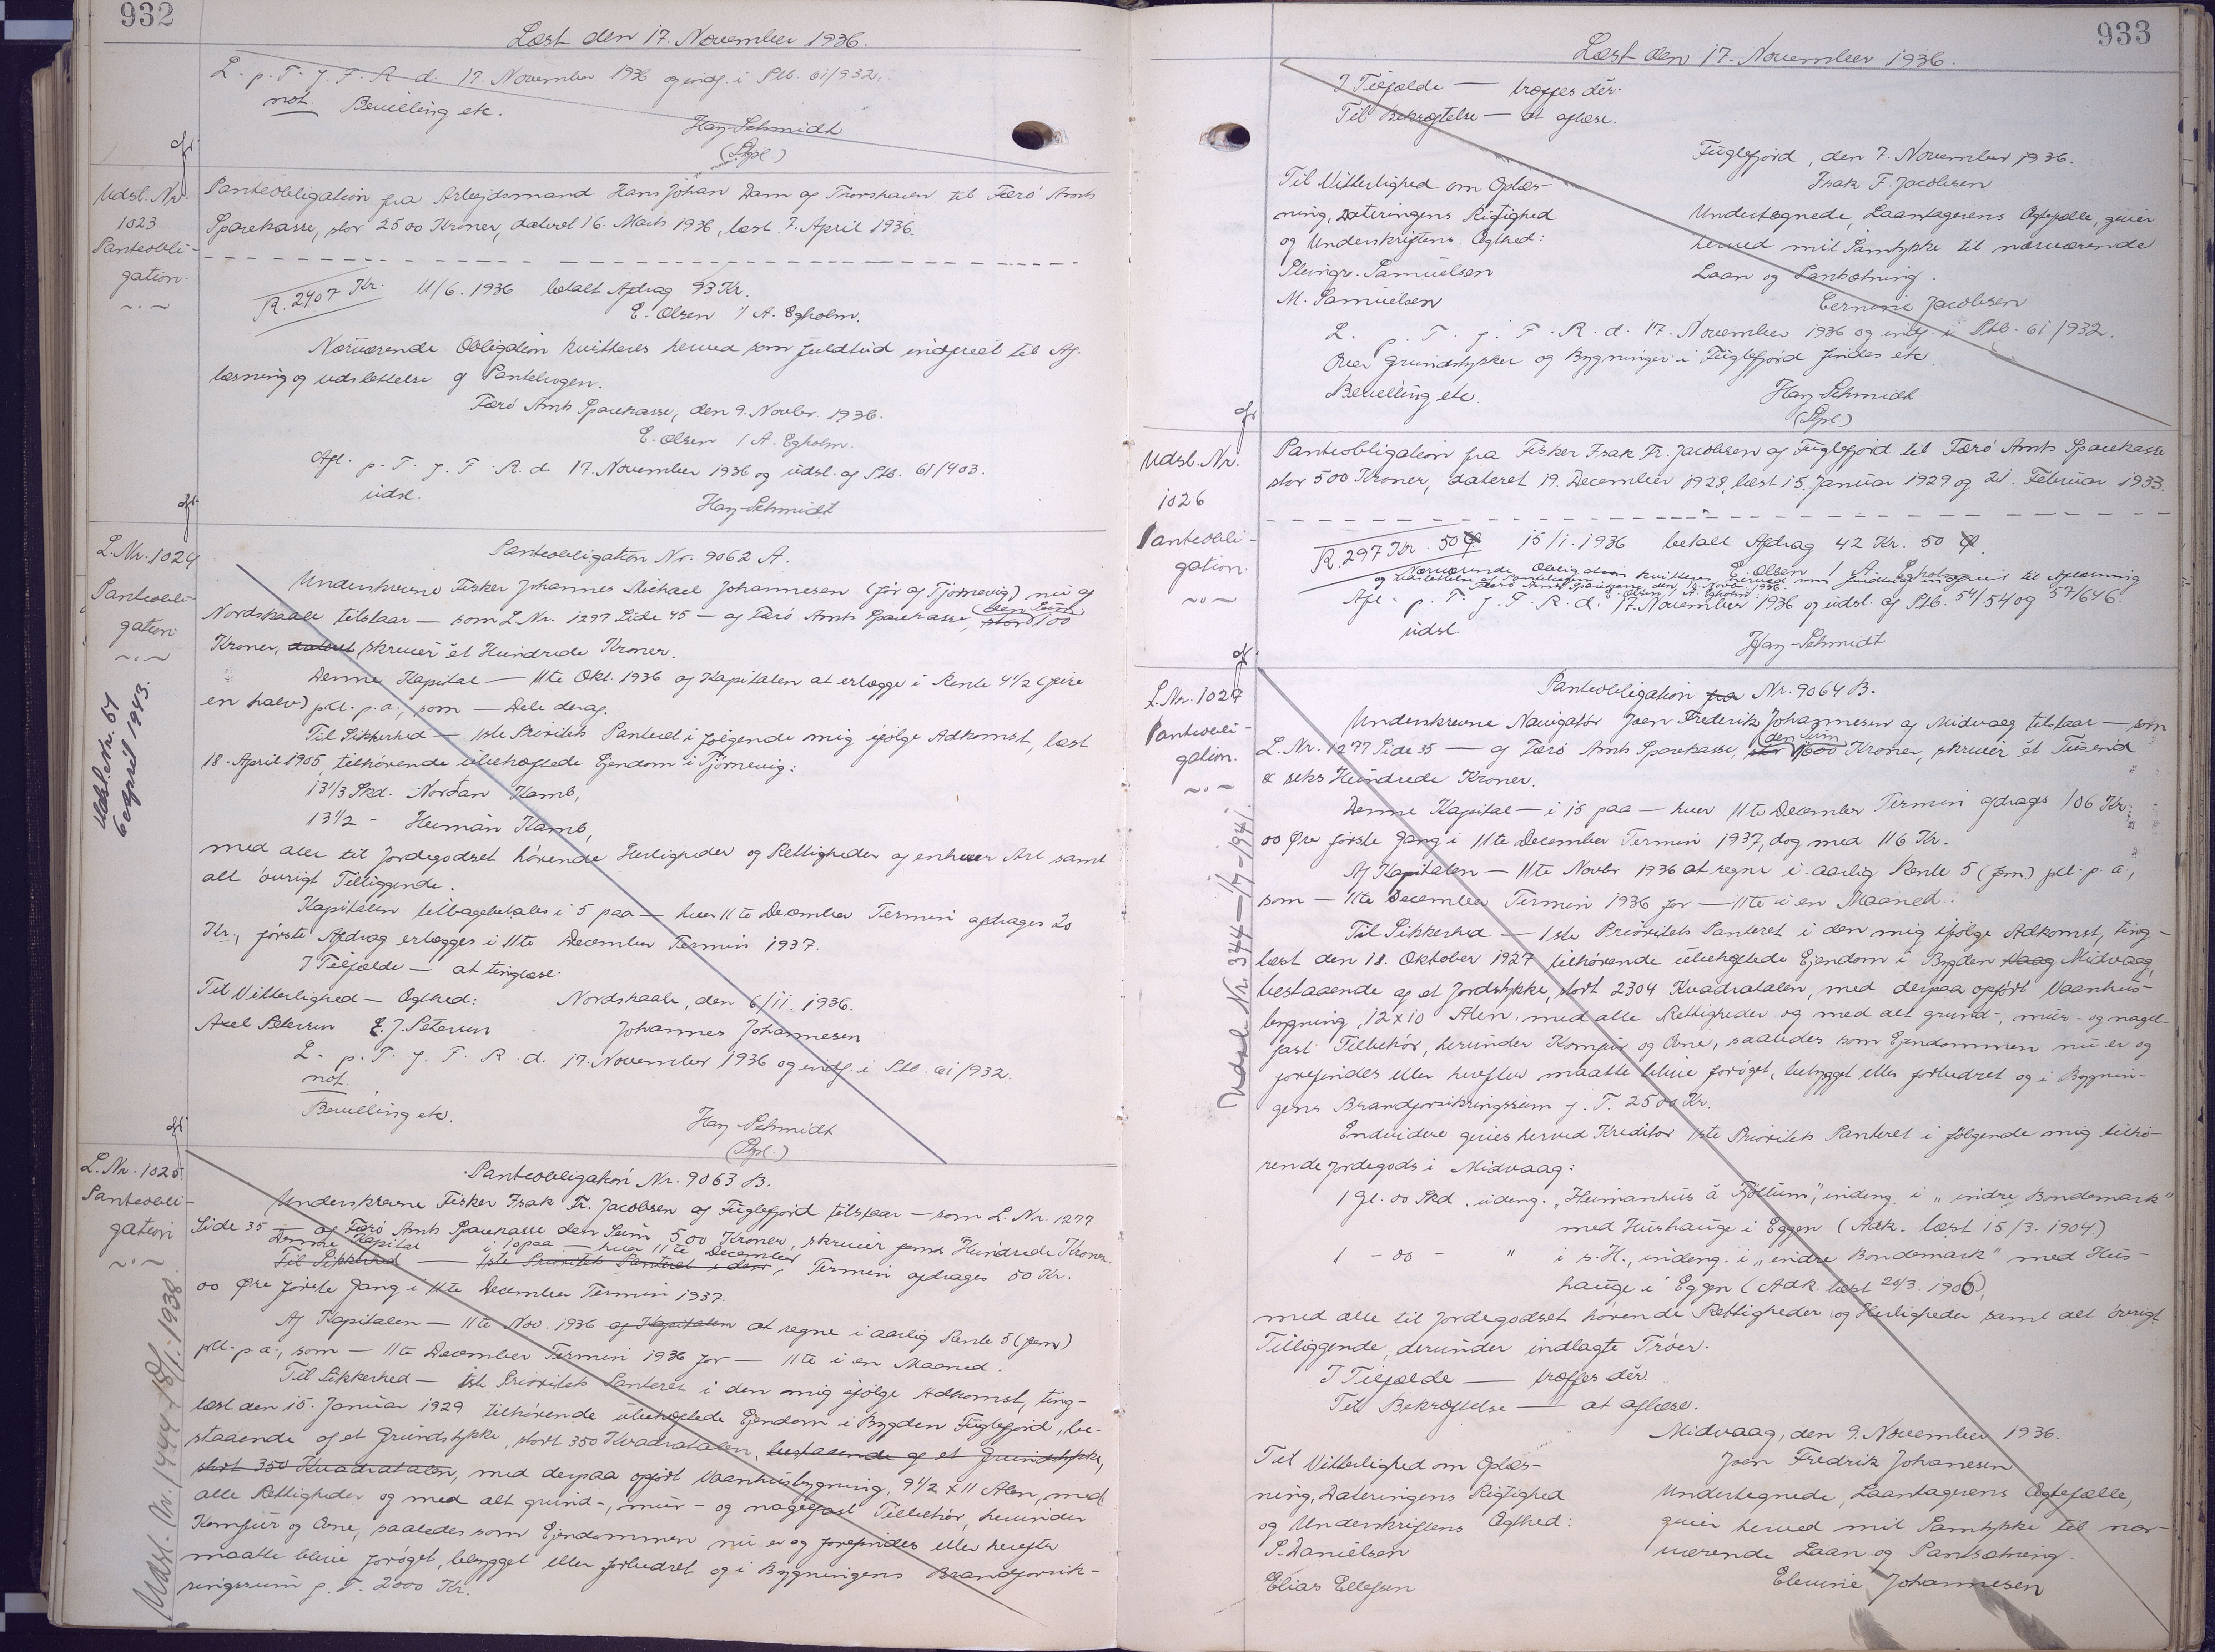 932
Læst den 17. November 1936.
L. p. T. f. F. R. d. 17. November 1936 og indf. i Ptb. 61/932.
not. Bevilling etc.
Hay-Schmidt
(Spl.)
afs.
Udsl. Nr.
1023
Panteobli-
gation.
Panteobligation fra Arbejdsmand Hans Johan Dam af Thorshavn til Færø Amts
Sparekasse, stor 2500 Kroner, dateret 16. Marts 1936, læst 7. April 1936.
R. 2407 Kr. 11/6. 1936 betalt Afdrag 93 Kr.
E. Olsen / A. Egholm.
Nærværende Obligation kvitteres herved som fuldtud indfriet til Af-
læsning og udslettelse af Pantebogen.
Færø Amts Sparekasse, den 9. Novbr. 1936.
E. Olsen / A. Egholm.
Afl. p. T. f. F. R. d. 17. November 1936 og udsl. af Ptb. 61/403.
udsl.
Hay-Schmidt
afs.
L. Nr. 1024
Panteobli-
gation
Udsl. Nr. 67
6 april 1943.
Panteobligation Nr. 9062 A.
Underskrevne Fisker Johannes Michael Johannesen (før af Tjørnevig) nu af
Nordskaale tilstaar — som L. Nr. 1297 Side 45 — af Færø Amts Sparekasse, stor den Sum 100
Kroner, dateret, skriver ét Hundrede Kroner.
Denne Kapital — 11te Okt. 1936 af Kapitalen at erlægge i Rente 4 1/2 (fire
en halv) pCt. p. a., som — Dele deraf.
Til Sikkerhed — 1ste Prioritets Panteret i følgende mig ifølge Adkomst, læst
18. April 1905, tilhørende ubehæftede Ejendom i Tjørnevig:
13 1/3 Skd. Nordan Kamb,
13 1/2 - Heiman Kamb,
med alle til Jordegodset hørende Herligheder og Rettigheder af enhver Art samt
alt øvrigt Tilliggende.
Kapitalen tilbagebetales i 5 paa — hver 11te December Termin afdrages 20
Kr., første Afdrag erlægges i 11te December Termin 1937.
I Tilfælde — at tinglæse.
Til Vitterlighed — Ægthed: Nordskaale, den 6/11. 1936.
Axel Petersen E. J. Petersen Johannes Johannesen
L. p. T. f. F. R. d. 17. November 1936 og indf. i Ptb. 61/932.
not.
Bevilling etc.
Hay-Schmidt
(Spl.)
afs.
L. Nr. 1025.
Panteobli-
gation
Udsl. Nr. 1444 - 18/1. 1938.
Panteobligation Nr. 9063 B.
Underskrevne Fisker Isak Fr. Jacobsen af Fuglefjord tilstaar — som L. Nr. 1277
Side 35 — af Færø Amts Sparekasse den Sum 500 Kroner, skriver fem Hundrede Kroner.
Denne Kapital — i 10 paa — hver 11te December
Til Sikkerhed — 1ste Prioritets Panteret i den, Termin afdrages 50 Kr.
00 Øre første Gang i 11te December Termin 1937.
Af Kapitalen — 11te Nov. 1936 af Kapitalen at regne i aarlig Rente 5 (fem)
pCt. p. a., som — 11te December Termin 1936 for — 11te i en Maaned.
Til Sikkerhed — 1ste Prioritets Panteret i den mig ifølge Adkomst, ting-
læst den 15. Januar 1929 tilhørende ubehæftede Ejendom i Bygden Fuglefjord, be-
staaende af et Grundstykke, stort 350 Kvadratalen, bestaaende af et Grundstykke,
stort 350 Kvadratalen, med derpaa opført Vaanhusbygning, 9 1/2 x 11 Alen, med
alle Rettigheder og med alt grund-, mur- og nagelfast Tilbehør, herunder
Komfur og Ovne, saaledes som Ejendommen nu er og forefindes eller herefter
maatte blive forøget, bebygget eller forbedret og i Bygningens Brandforsik-
ringssum p. T. 2000 Kr.
933
Læst den 17. November 1936.
I Tilfælde — træffes dér.
Til Bekræftelse — at aflæse.
Fuglefjord, den 7. November 1936.
Isak F. Jacobsen
Til Vitterlighed om Oplæs-
ning, Dateringens Rigtighed
og Underskriftens Ægthed:
Steingr. Samuelsen
M. Samuelsen
Undertegnede, Laantagerens Ægtefælle, giver
herved mit Samtykke til nærværende
Laan og Pantsætning.
Jacobsen
L. p. T. f. F. R. d. 17. November 1936 og indf. i Ptb. 61/932.
Over Grundstykker og Bygninger i Fuglefjord findes etc.
Bevilling etc.
Hay-Schmidt
(Spl.)
afs.
Udsl. Nr.
1026
Panteobli-
gation.
Panteobligation fra Fisker Isak Fr. Jacobsen af Fuglefjord til Færø Amts Sparekasse
stor 500 Kroner, dateret 19. December 1928, læst 15. Januar 1929 og 21. Februar 1933.
R. 297 Kr. 50 Ø 15/1. 1936 betalt Afdrag 42 Kr. 50 Ø.
E. Olsen / A. Egholm
Nærværende Obligation kvitteres herved som fuldtud indfriet til Aflæsning
og udslettelse af Pantebogen.
Færø Amts Sparekasse, den 9. Novbr. 1936.
E. Olsen / A. Egholm.
Afl. p. T. f. F. R. d. 17. November 1936 og udsl. af Ptb. 54/54 og 57/646.
udsl.
Hay-Schmidt
afs.
L. Nr. 1027
Panteobli-
gation.
Udsl. Nr. 344 - 1/7 - 1941.
Panteobligation fra Nr. 9064 B.
Underskrevne Navigatør Joen Frederik Johannesen af Midvaag tilstaar — som
L. Nr. 1277 Side 35 — af Færø Amts Sparekasse, stor den Sum 1600 Kroner, skriver ét Tusend
& seks Hundrede Kroner.
Denne Kapital — i 15 paa — hver 11te December Termin afdrages 106 Kr.
00 Øre første Gang i 11te December Termin 1937, dog med 116 Kr.
Af Kapitalen — 11te Novbr 1936 at regne i aarlig Rente 5 (fem) pCt. p. a.,
som — 11te December Termin 1936 for — 11te i en Maaned.
Til Sikkerhed — 1ste Prioritets Panteret i den mig ifølge Adkomst, ting-
læst den 18. Oktober 1927 tilhørende ubehæftede Ejendom i Bygden Vaag Midvaag,
bestaaende af et Jordstykke, stort 2304 Kvadratalen, med derpaa opført Vaanhus-
bygning, 12 x 10 Alen, med alle Rettigheder og med alt grund-, mur- og nagel-
fast Tilbehør, herunder Komfur og Ovne, saaledes som Ejendommen nu er og
forefindes eller herefter maatte blive forøget, bebygget eller forbedret og i Bygnin-
gens Brandforsikringssum p. T. 2500 Kr.
Endvidere gives herved Kreditor 1ste Prioritets Panteret i følgende mig tilhø-
rende Jordegods i Midvaag:
1 Gl. 00 Skd. udeng. „Heimanhus á Fjøllum", indeng. i „indre Bondemark"
med Hushauge i Eggen (Adk. læst 15/3. 1904)
1 - 00 - " i s. H., indeng. i „indre Bondemark" med Hus-
hauge i Eggen (Adk. læst 20/3. 1906),
med alle til Jordegodset hørende Rettigheder og Herligheder samt alt øvrigt
Tilliggende, derunder indlagte Trøer.
I Tilfælde — træffes dér.
Til Bekræftelse — at aflæse.
Midvaag, den 9. November 1936.
Joen Fredrik Johanesen
Til Vitterlighed om Oplæs-
ning, Dateringens Rigtighed
og Underskriftens Ægthed:
S. Danielsen
Elias Ellefsen
Undertegnede, Laantagerens Ægtefælle,
giver herved mit Samtykke til nær-
værende Laan og Pantsætning.
Johannesen